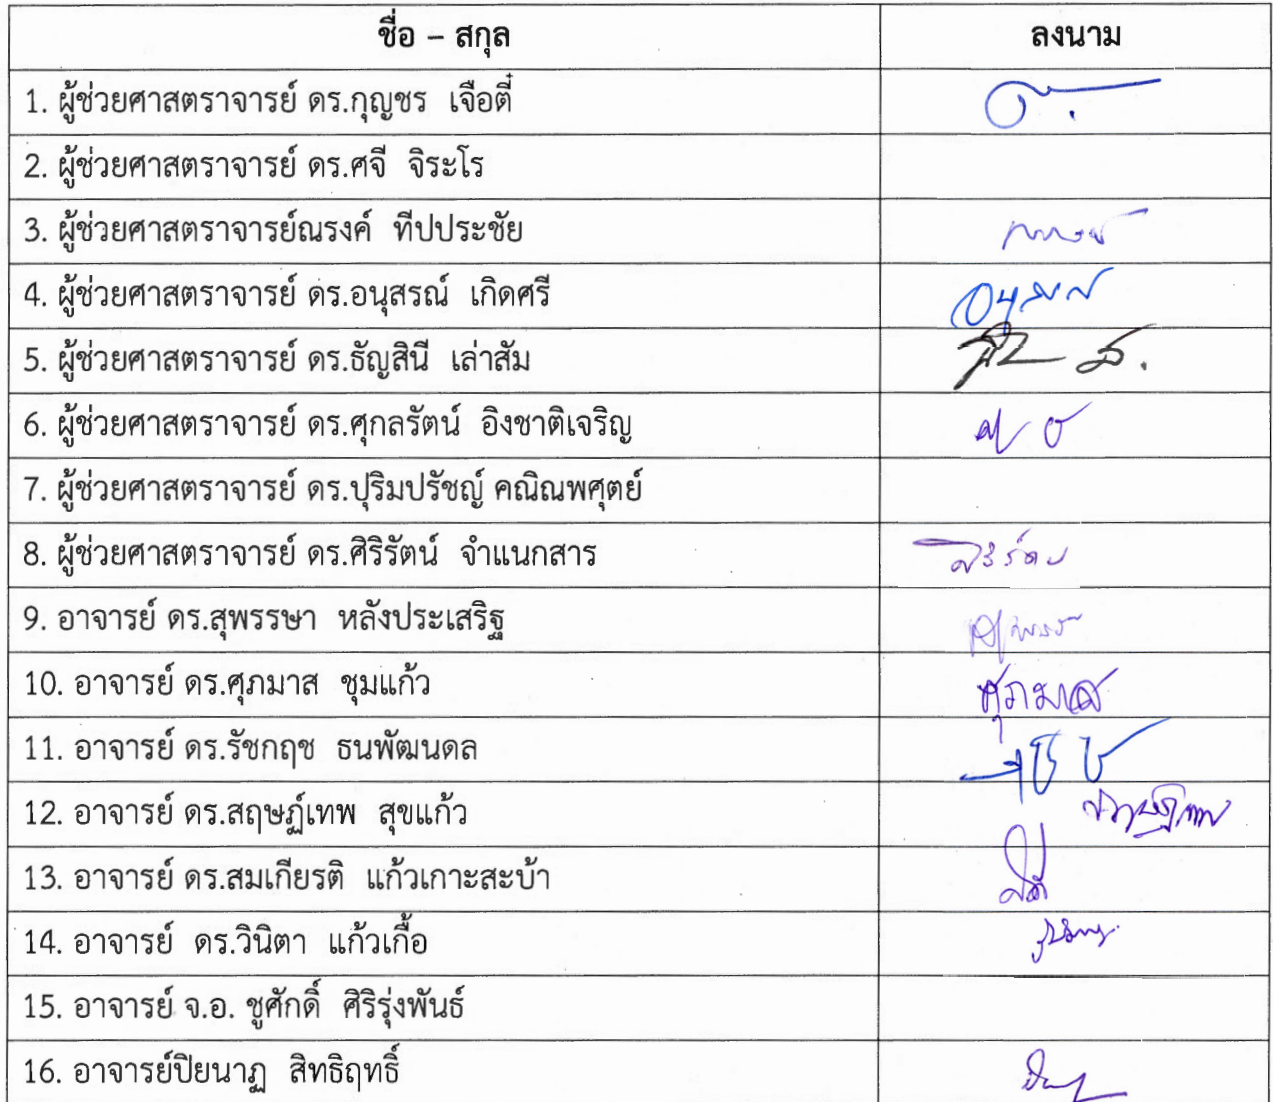 ชื่อ – สกุล ลงนาม
1. ผู้ช่วยศาสตราจารย์ ดร.กุญชร เจือตี๋
2. ผู้ช่วยศาสตราจารย์ ดร.ศจี จิระโร
3. ผู้ช่วยศาสตราจารย์ณรงค์ ทีปประชัย
4. ผู้ช่วยศาสตราจารย์ ดร.อนุสรณ์ เกิดศรี
5. ผู้ช่วยศาสตราจารย์ ดร.ธัญสินี เล่าสัม
6. ผู้ช่วยศาสตราจารย์ ดร.ศุกลรัตน์ อิงชาติเจริญ
7. ผู้ช่วยศาสตราจารย์ ดร.ปุริมปรัชญ์ คณิณพศุตย์
8. ผู้ช่วยศาสตราจารย์ ดร.ศิริรัตน์ จำแนกสาร
9. อาจารย์ ดร.สุพรรษา หลังประเสริฐ
10. อาจารย์ ดร.ศุภมาส ชุมแก้ว ศุภมาส
11. อาจารย์ ดร.รัชกฤช ธนพัฒนดล
12. อาจารย์ ดร.สฤษฏ์เทพ สุขแก้ว
13. อาจารย์ ดร.สมเกียรติ แก้วเกาะสะบ้า
14. อาจารย์ ดร.วินิตา แก้วเกื้อ
15. อาจารย์ จ.อ. ชูศักดิ์ ศิริรุ่งพันธ์
16. อาจารย์ปิยนาฏ สิทธิฤทธิ์